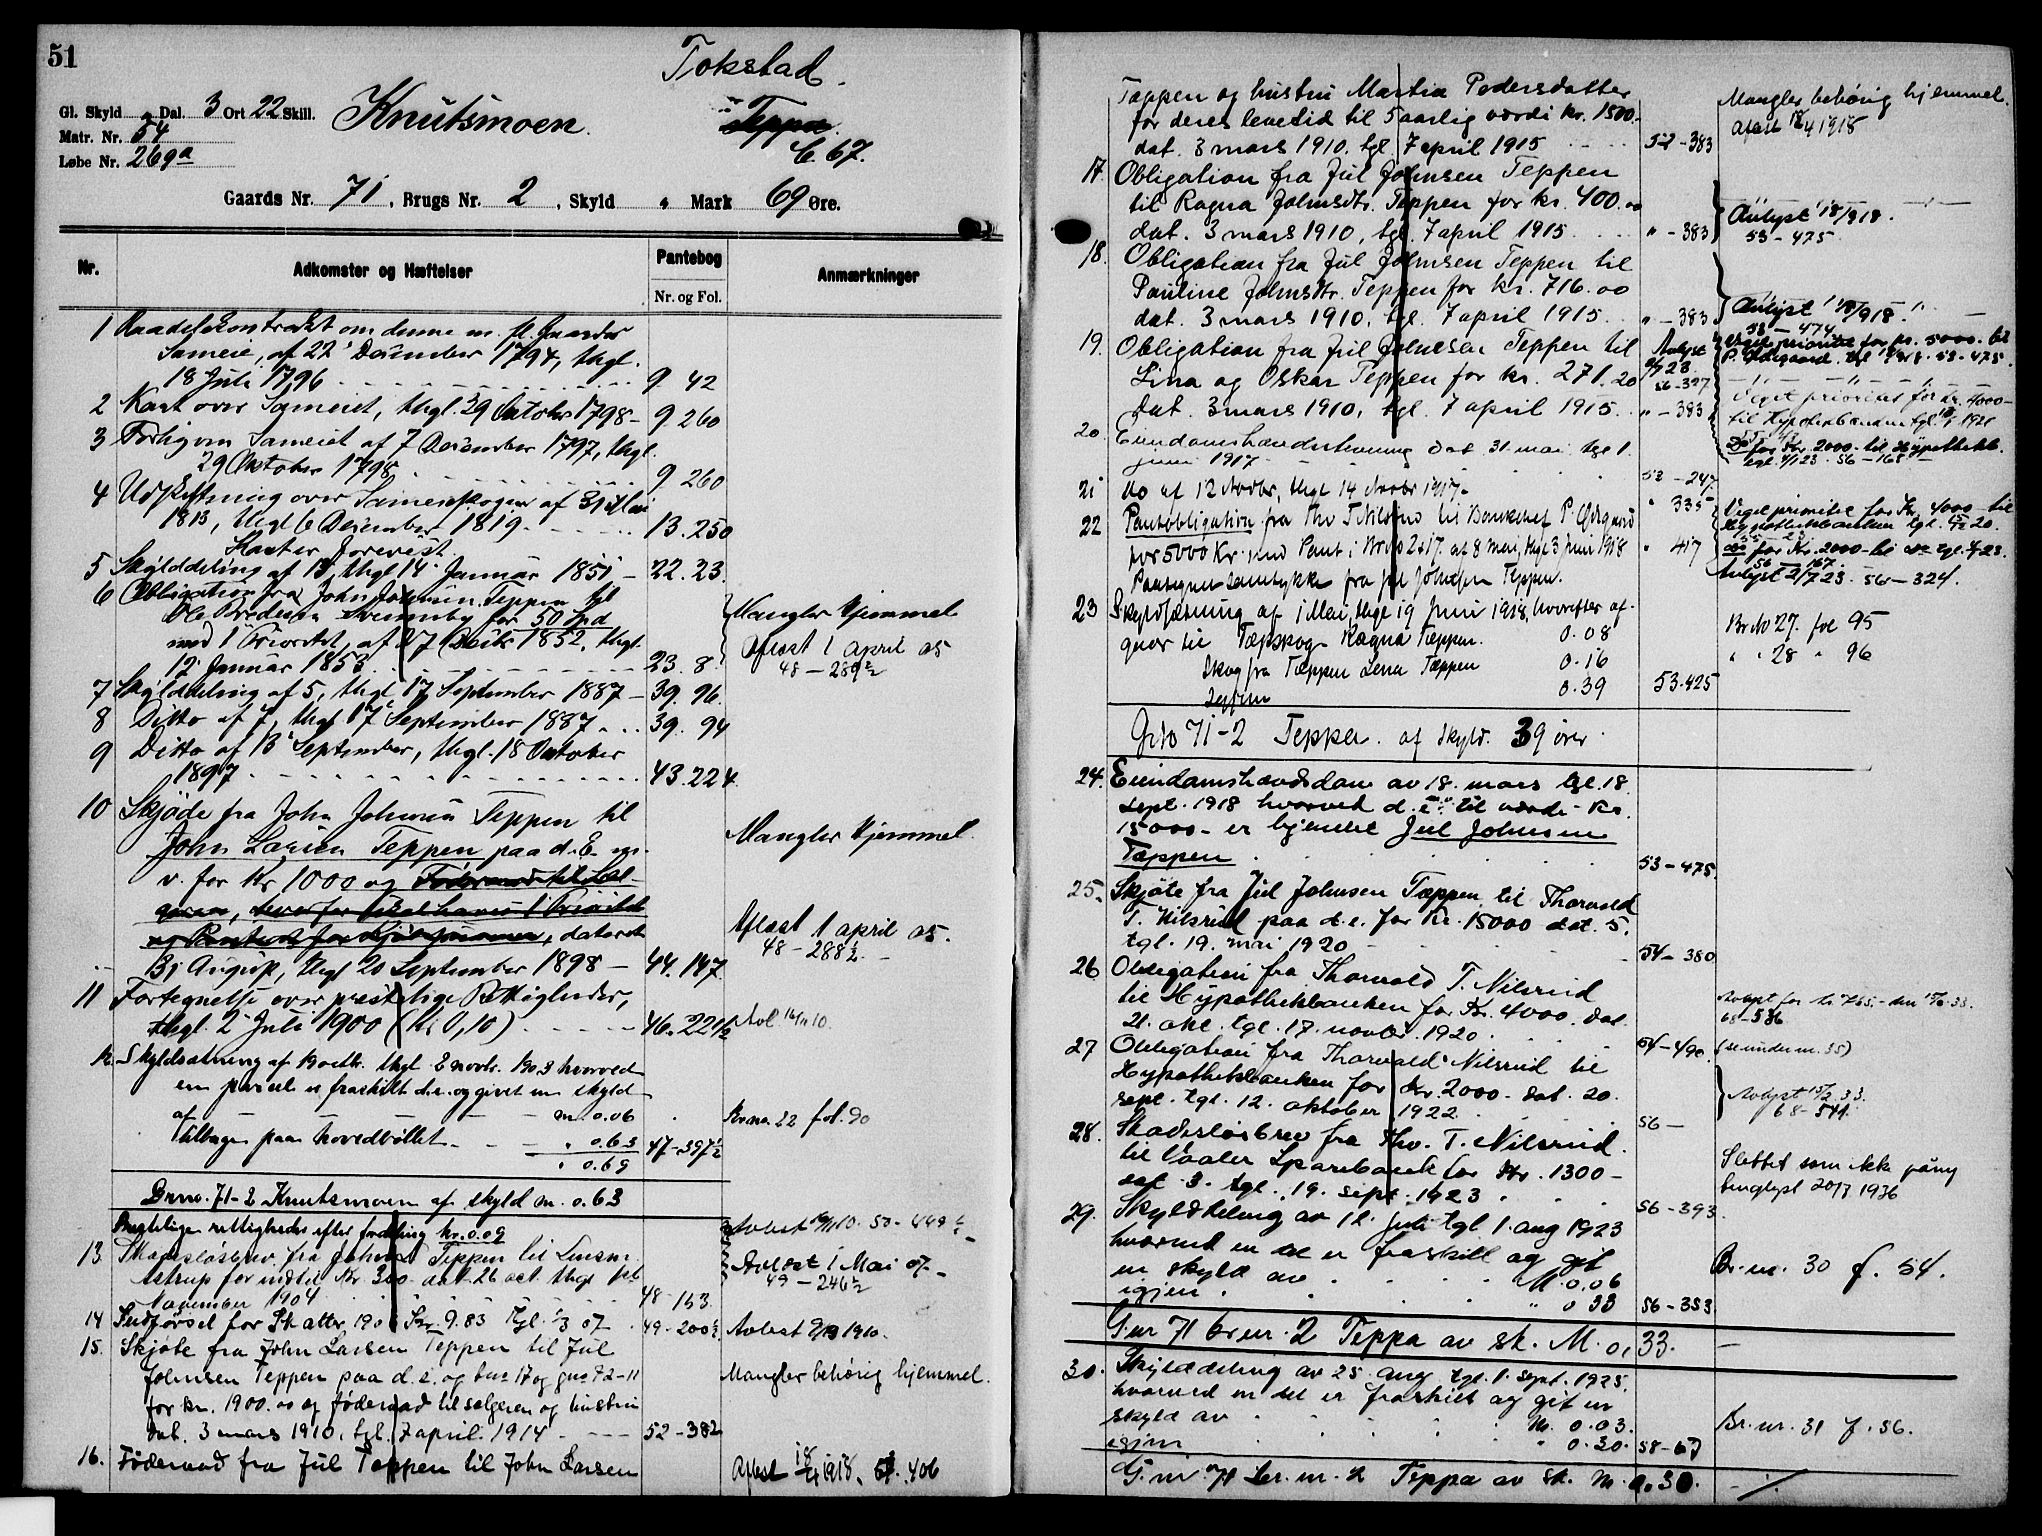 51
Tokstad.
Gl. Skyld " Dal. 3 Ort 22 Skill. Knutsmoen. " Teppa.
Matr. Nr. 54
C 67.
Løbe Nr. 269a
Gaards Nr. 71, Brugs Nr. 2, Skyld " Mark 69 Øre.
Nr. Adkomster og Hæftelser Pantebog Anmærkninger
Nr. og Fol.
1 om denne m. fl. Gaardes
Sameie, af 22 December 1794, thgl.
18 Juli 1796 9 42
2 Kart over Sameiet, thgl. 29 Oktober 1798 - 9 260
3 Forlig om Sameiet af 7 December 1797, thgl.
29 Oktober 1798 9 260
4 Udskiftning over Sameieskogen af 31 Mai
1813, thgl 6 December 1819 13.250
Karter forevist.
5 Skylddeling af 13, thgl 14 Januar 1851 - 22.23.
6 Obligation fra John Johnsen Teppen til
Ole Svenneby for 50 Spd
med 1 Prioritet, af 27 Decbr 1852, thgl.
12 Januar 1853 23. 8.
Mangler Hjemmel
Aflæst 1 april 05
48 - 289½
7 Skylddeling af 5, thgl 17 September 1887 - 39. 96.
8 Ditto af 7, thgl 17 September 1887 39. 94
9 Ditto af 13 September, thgl. 18 Oktober
1897 43.224.
10 Skjøde fra John Johnsen Teppen til
John Larsen Teppen paa d. E. m.
v. for Kr 1000 og Føderaad til Sæl-
geren, dateret
31 August, thgl 20 September 1898 - 44.147.
Mangler Hjemmel.
Aflæst 1 april 05.
48 - 288½ -
11 Fortegnelse over prestelige Rettigheder,
thgl. 2 Juli 1900 (Kr 0,10) 46.22½
12. Skyldsætning af 13 octbr. thgl 2 novbr. 1903 hvorved
en parcel er fraskilt d.e. og givet en skyld
af - - - m 0.06 Brno. 22 fol. 90
Tilbage paa hovedbøllet - - " 0.63 47-397½
" 0.69
Brno. 71-2 Knutsmoen af skyld m. 0.63
Prestelige rettigheder efter fordeling kr. 0.09
13. Skadesløsbrev fra John Teppen til Lensm.
Astrup for indtil Kr. 300 dat. 26 oct. thgl. 1st
November 1904 48-153.
Avlæst 1 Mai 07 -
49 - 246½
14 Kr. 9.83 Tgl. 1/3 07 49-200½ Avlæst 1910.
15. Skjøte fra John Larsen Teppen til Jul
Johnsen Teppen paa d. e. og bno 17 og gno 72-11
for kr. 1900.00 og føderaad til selgeren og hustru
dat. 3 mars 1910, tgl. 7 april 1914 52-382
Mangler behörig hjemmel.
16. Føderaad fra Jul Teppen til John Larsen Aflæst 18/4 1918. 406
Teppen og hustru Martia Pedersdatter
for deres levetid til 5 aarlig værdi kr. 1500.-
dat. 3 mars 1910. tgl. 7 april 1915 52-383
Mangler behörig hjemmel.
Aflæst 18/4 1918
17. Obligation fra Jul Johnsen Teppen
til Ragna Johnsdtr. Teppen for kr. 400.00
dat. 3 mars 1910, tgl. 7 april 1915 " - 383
Avlyst 18/9 18.
53 - 475.
18. Obligation fra Jul Johnsen Teppen til
Pauline Johnsdtr. Teppen for kr. 716.00
dat. 3 mars 1910, tgl. 7 april 1915 " - 383
Avlyst 18/9 18.
53 - 474
19. Obligation fra Jul Johnsen Teppen til
Lina og Oskar Teppen for kr. 271.20
dat. 3 mars 1910, tgl. 7 april 1915 " - 383
Avlyst
23.
56-327
Veget prioritet for kr. 5000 - til
P. Ødegaard 53-475.
Veget prioritet for kr. 4000 -
til Hypothekbanken tgl. 1921
Do for Kr. 2000 - til Hypothekb.
tgl. 4/1 23. 56 - 168 -
20. Eiendomshævdstevning dat 31 mai tgl 1.
juni 1917 - 53 - 247.
21 do af 12 Novbr, thgl 14 Novbr 1917 - " 335
22 Pantobligation fra Thv T. Nilsrud til Bankchef P. Ødegaard
for 5000 Kr. med Pant i Brno 2 & 17. af 8 Mai, thgl 3 Juni 1918 " 417
Paategnet samtykke fra Jul Johnsen Teppen.
Veget prioritet for Kr. 4000 - til
Hypothekbanken tgl. 20.
do for Kr. 2000 - til do tgl. 4/1 23.
56 - 167.
Avlyst 2/7 23. 56 - 324.
23 Skyldsætning af 1 Mai, thgl 19 Juni 1918, hvorefter af-
gaar til Tæpskog Ragna Tæppen. 0.08 Br No 27. fol 95
Skog fra Tæppen Lena Tæppen 0.16 " " 28 " 96
Igjen 0.39 53.425
Gno 71-2 Teppen. af skyld. 39 øre.
24. Eiendomshævdsdom av 18. mars tgl. 18
sept. 1918 hvorved d. e. til værdi Kr.
15000 - er hjemlet Jul Johnsen
Tæppen 53-475.
25. Skjøte fra Jul Johnsen Tæppen til Thorvald
T. Nilsrud paa d. e. for Kr. 15000 dat. 5.
tgl. 19. mai 1920 54-380
26 Obligation fra Thorvald T. Nilsrud
til Hypothekbanken for Kr. 4000. dat.
21. okt. tgl. 17. novbr. 1920. 54-490.
Avlyst for kr 765.- den 33.
68-536
(se under nr. 35)
27 Obligation fra Thorvald Nilsrud til
Hypothekbanken for Kr. 2000 - dat. 20.
sept. tgl. 12. oktober 1922. 56 -
Avlyst 33.
68-541.
28. Skadesløsbrev fra Thv. T. Nilsrud.
til Vaaler Sparebank for Kr. 1300 -
dat. 3. tgl. 19. sept. 1923 56-393.
Slettet som ikke påny
tinglyst 20/7 1936
29. Skylddeling av 12. juli tgl. 1. aug 1923
hvorved en del er fraskilt og git
en skyld av M. 0.06 Br. nr. 30 f. 54.
igjen " 0 33 56-353
G. nr 71 br. nr. 2 Teppa av sk. M. 0,33. -
30. Skylddeling av 25. aug tgl. 1. sept. 1925.
hvorved en del er fraskilt og git en
skyld av M. 0.03. Br. nr. 31 f. 56.
igjen " 0.30. 58-67
G. nr 71 br. nr. 2 Teppa av sk. M 0.30. -/-